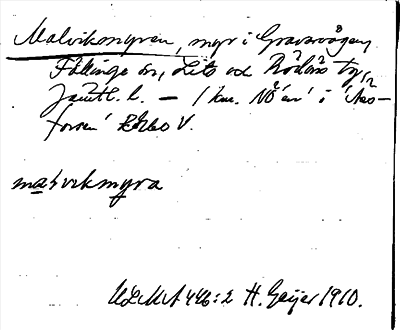 Malviksmyren, myr i Gravarvågen
Föllinge sn, Lits och Rödöns tg,
Jämtl. l. – 1 km. NÖ "en" i "Åsö-
forsen" EkbO V.
malviksmyra
ULMA 446:2 H. Geijer 1910.